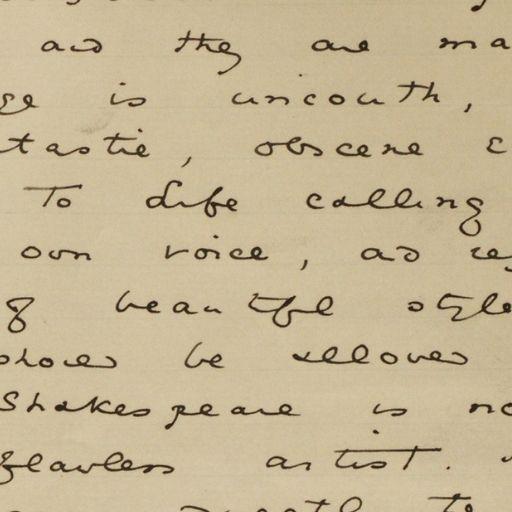 and they are ma
ge is uncouth,
tastic, obscene
To Life calling
own voice, and re
g beautiful style
should be allowed
Shakespeare is no
flawless artist.
to